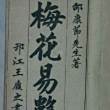 邵康節先生著
梅花易數
邗江王㡳正書